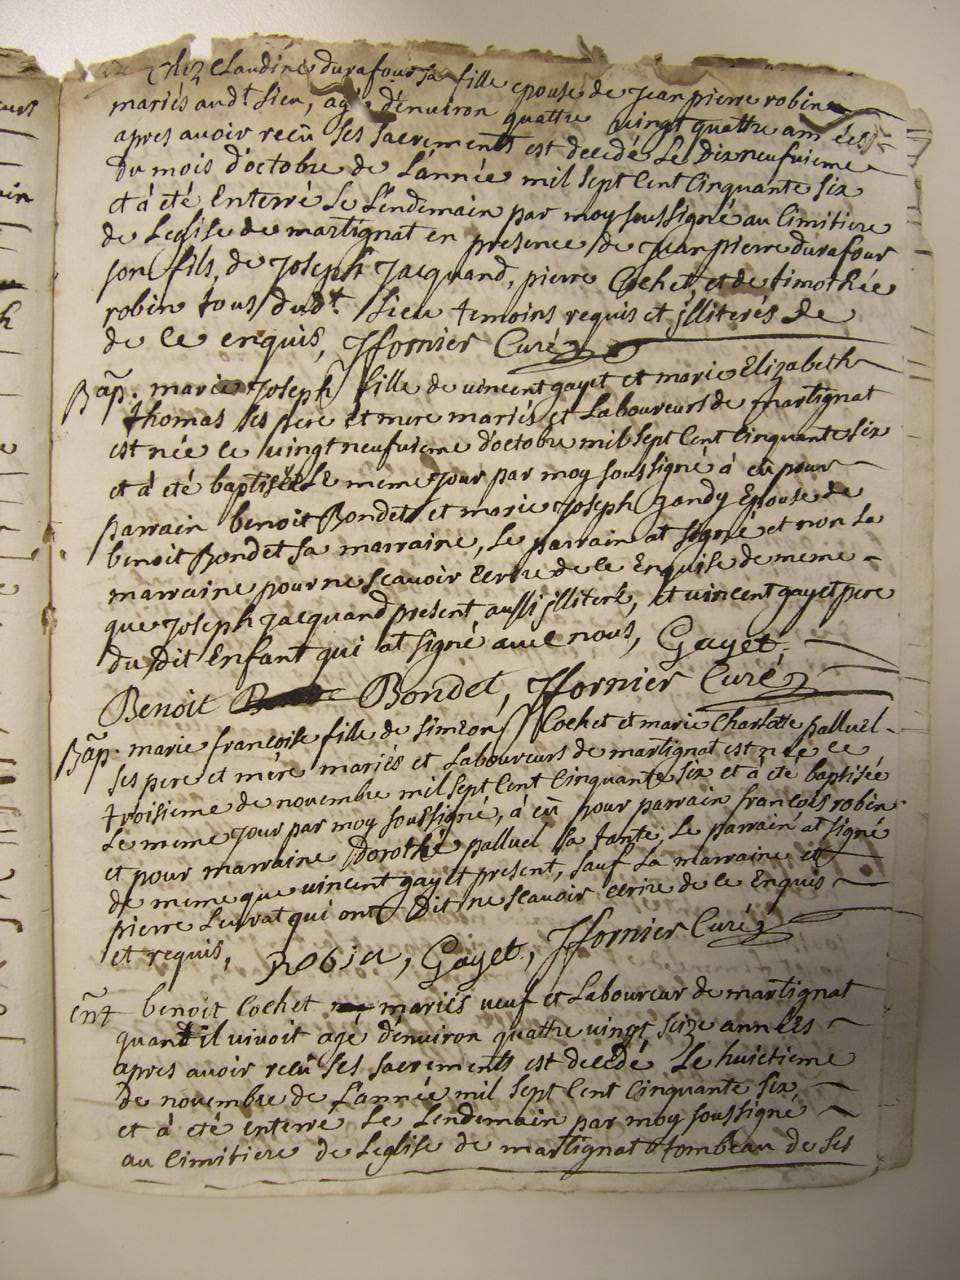 chez Claudine durafour sa fille epouse de jean pierre robin
mariés aud.t lieu, agé d'environ quattre vingt quattre années
apres avoir reçû ses sacrements est decedé Le dix neufvieme
du mois d'octobre de L'année mil sept Cent Cinquante six
et à été Enterré Le Lendemain par moy soussigné au Cimitiere
de Leglise de martignat en presence de jean pierre durafour
son fils, de joseph jacquand, pierre Cochet et de timothée
robin tous dud.t Lieu temoins requis et jlliterés de
de ce enquis, Jffornier Curé
Bap. marie joseph fille de vincent gayet et marie Elizabeth
thomas ses pere et mere mariés et Laboureurs de martignat
est née ce vingt neufvieme d'octobre mil sept Cent Cinquante six
et à été baptisée Le meme jour par moy soussigné à eû pour
parrain benoit Bondet et marie joseph Gandy Epouse de
benoit Bondet sa marraine, Le parrain at signé et non La
marraine pour ne scavoir Ecrire de ce Enquise de meme
que joseph jacquand present aussi jlliteré, et vincent gayet pere
du dit Enfant qui at signé avec nous, Gayet
Benoit Bondet, Jffornier Curé
Bap. marie francoise fille de simeon Cochet et marie Charlotte palluel
ses pere et mére mariés et Laboureurs de martignat est née ce
troisieme de novembre mil sept Cent Cinquante six et à été baptisée
Le meme jour par moy soussigné, à eû pour parrain francois robin
et pour marraine Dorothé palluel sa tante, Le parrain at signé
de meme que vincent gayet present, sauf La marraine et
pierre Levrat qui ont dit ne scavoir ecrire de ce Enquis
et requis, robin, Gayet, Jffornier Curé
Ent benoit Cochet mariés veuf et Laboureur de martignat
quand il vivoit agé d'environ quattre vingt seize années
apres avoir reçû ses sacrements est decedé Le huictieme
de novembre de L'année mil sept Cent Cinquante six
et à été enterré Le Lendemain par moy soussigné
au Cimitiere de Leglise de martignat tombeau de ses